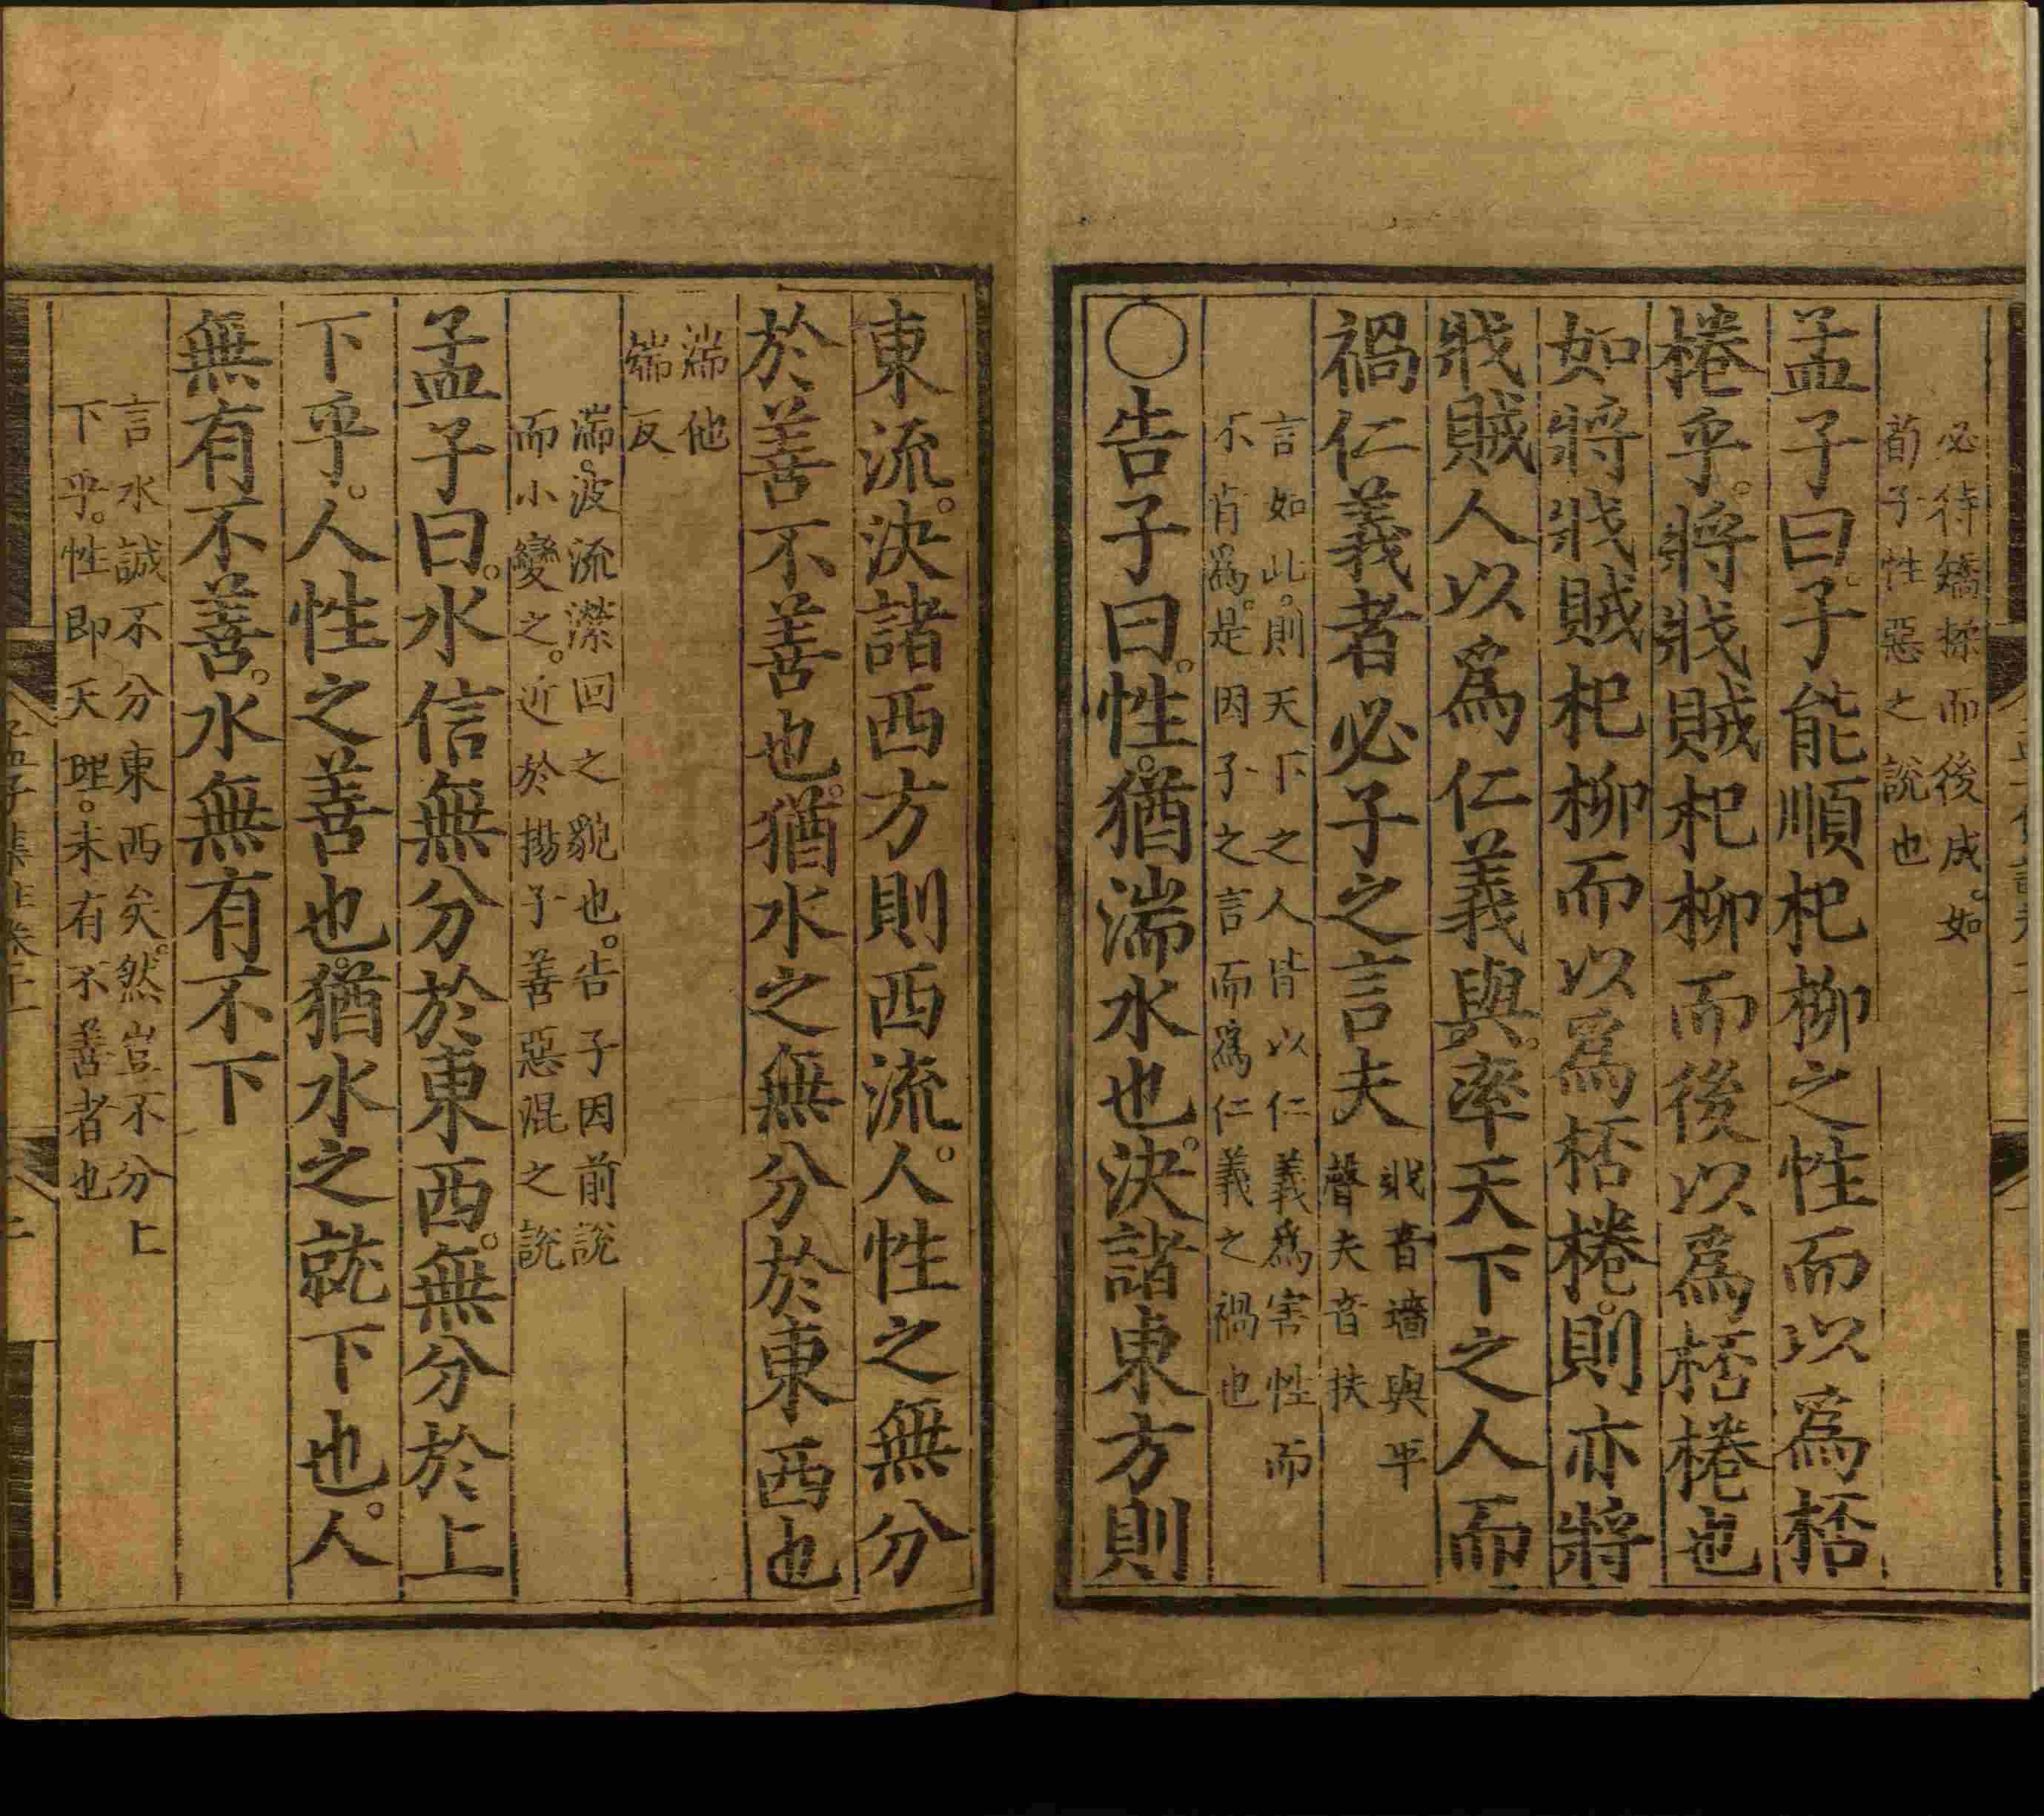 必待矯揉而後成。如
荀子性惡之說也
孟子曰。子能順杞柳之性而以爲桮
棬乎。將戕賊杞柳而後以爲桮棬也
如將戕賊杞柳而以爲桮棬。則亦將
戕賊人以爲仁義與。率天下之人而
禍仁義者必子之言夫
戕音牆與平
聲夫音扶
言如此。則天下之人皆以仁義爲害性而
不肯爲。是因子之言而爲仁義之禍也
○告子曰。性。猶湍水也。決諸東方則
東流。決諸西方則西流。人性之無分
於善不善也。猶水之無分於東西也
湍他
端反
湍。波流瀠回之貌也。告子因前說
而小變之。近於揚子善惡混之說
孟子曰。水信無分於東西。無分於上
下乎。人性之善也。猶水之就下也。人
無有不善。水無有不下
言水誠不分東西矣。然豈不分上
下乎。性即天理。未有不善者也